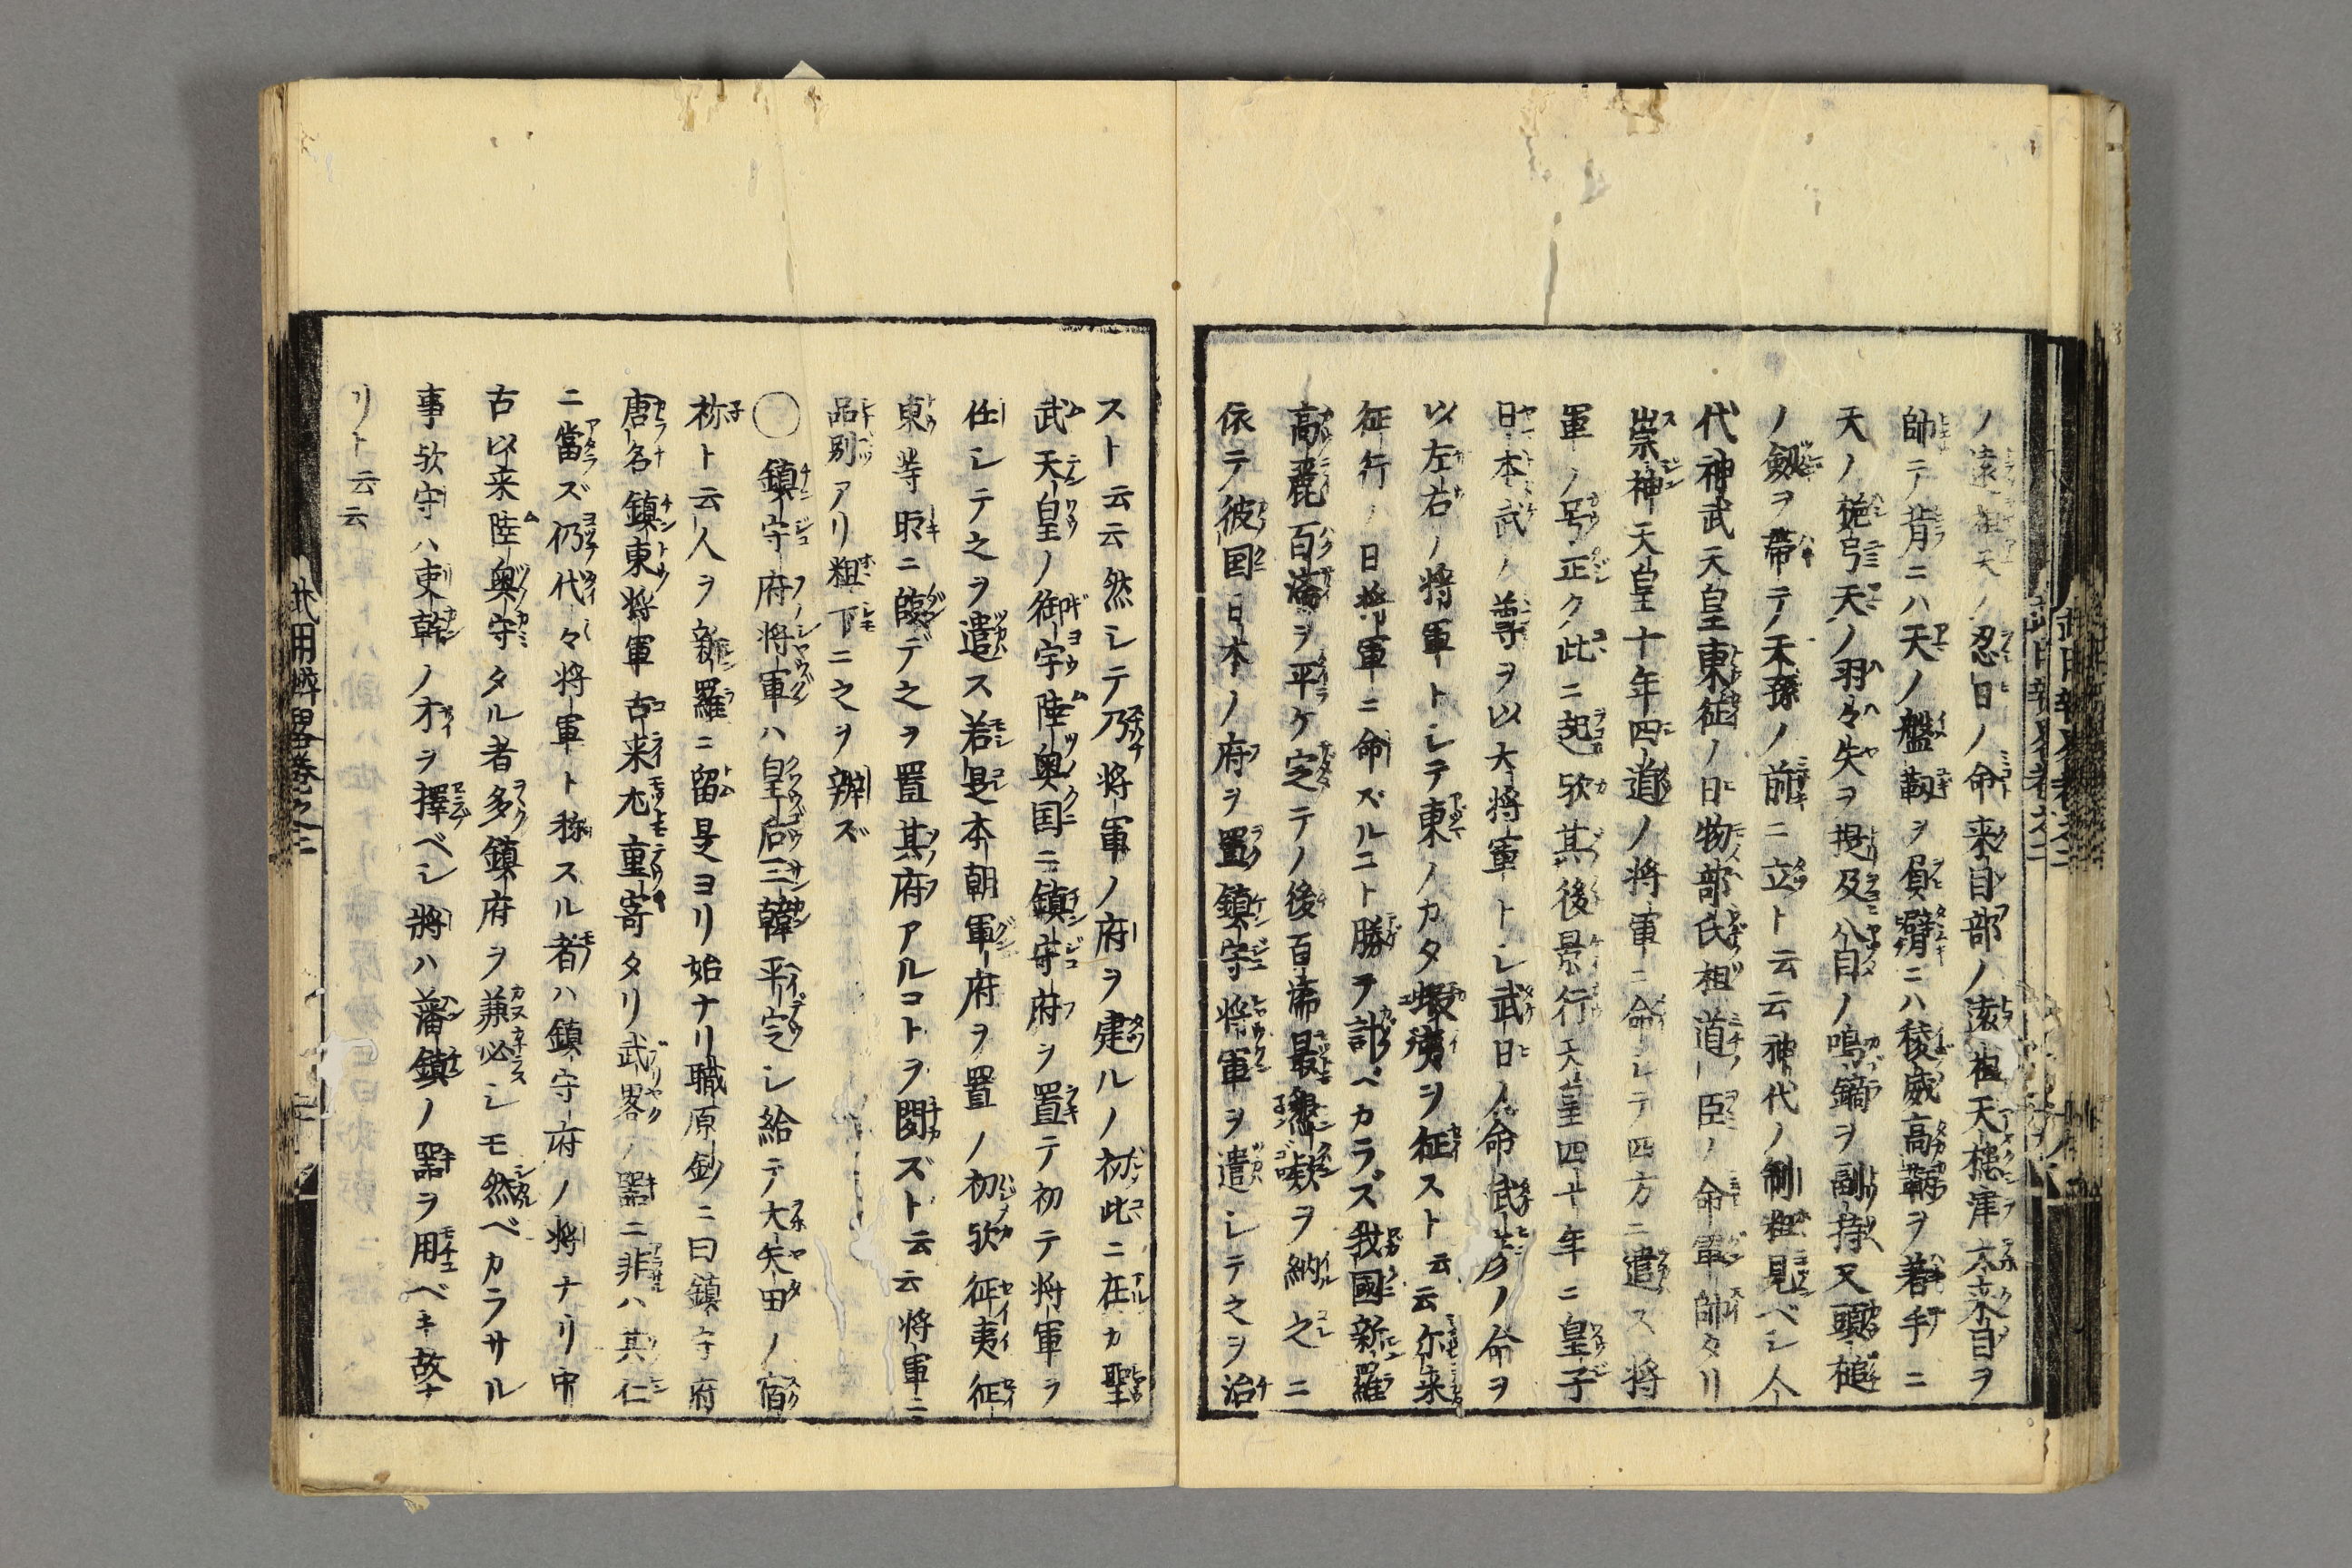 ノ遠祖天ノ忍日ノ命来目部ノ遠祖天槵津大来目ヲ
帥テ背ニハ天ノ盤靫ヲ負臂ニハ稜威高鞆ヲ着手ニ
天ノ梔弓天ノ羽々矢ヲ捉及八目ノ鳴鏑ヲ副持又頭槌
ノ劔ヲ帯テ天孫ノ前ニ立ト云云神代ノ制粗見ベシ人
代神武天皇東征ノ日物部氏祖道臣ノ命軍帥タリ
崇神天皇十年四道ノ将軍ニ命シテ四方ニ遣ス将
軍ノ号正ク此ニ起欤其後景行天皇四十年ニ皇子
日本武ノ尊ヲ以大将軍トシ武日ノ命武彦ノ命ヲ
以左右ノ将軍トシテ東ノカタ蝦夷ヲ征スト 云云尓来
征行ノ日将軍ニ命ズルニト勝テ計ベカラズ我國新羅
高麗百済ヲ平ケ定テノ後百済最懇款ヲ納之ニ
依テ彼国日本ノ府ヲ置鎮守将軍ヲ遣シテ之ヲ治
スト云云然シテ乃将軍ノ府ヲ建ルノ初此ニ在カ聖
武天皇ノ御宇陸奥国ニ鎮守府ヲ置テ初テ将軍ヲ
任シテ之ヲ遣ス若是本朝軍府ヲ置ノ初欤征夷征
東等時ニ臨デ之ヲ置其府アルコトヲ聞ズト云云将軍ニ
品別アリ粗下ニ之ヲ辨ズ
〇鎮守府将軍ハ皇后三韓平定シ給テ大矢田ノ宿
祢ト云人ヲ新羅ニ留是ヨリ始ナリ職原鈔ニ曰鎮守府
唐名鎮東将軍古来尤重寄タリ武畧ノ器ニ非ハ其仁
ニ當ズ仍代々将軍ト称スル者ハ鎮守府ノ将ナリ中
古以来陸奥守タル者多鎮府ヲ兼必シモ然ベカラサル
事欤守ハ吏幹ノ才ヲ擇ベシ将ハ藩鎮ノ器ヲ用ベキ故ナ
リト云云
武用辨畧巻之二